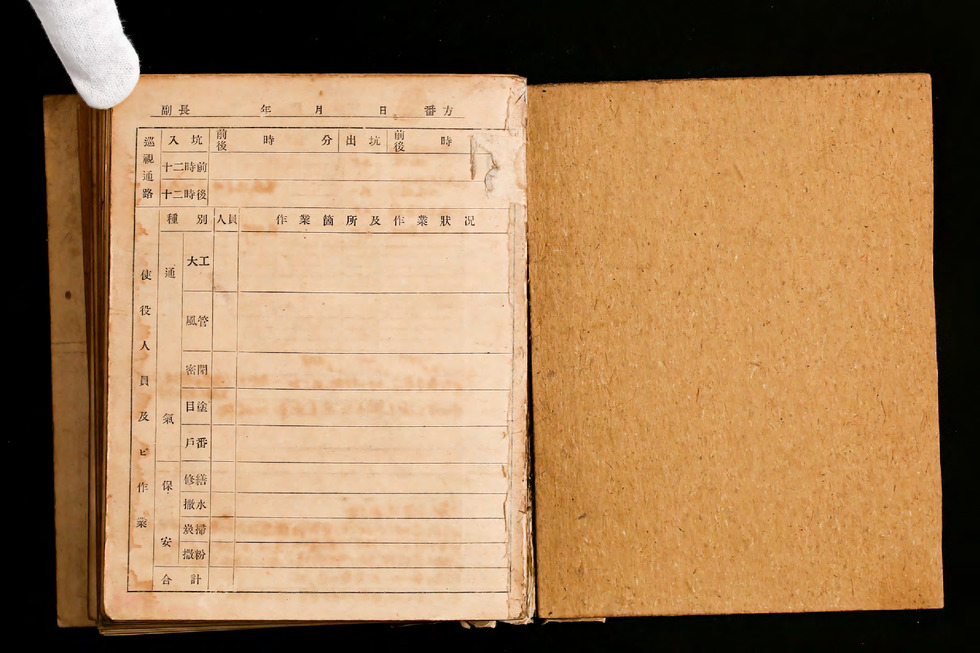 副長 年 月 日 番方
巡視通路
入坑 前後 時 分 出坑 前後 時
十二時前
十二時後
使役人員及ビ作業
種別 人員 作業箇所及作業狀況
通氣
大工
風管
密閉
目塗
戶番
保安
修繕
撒水
炭掃
撒粉
合計